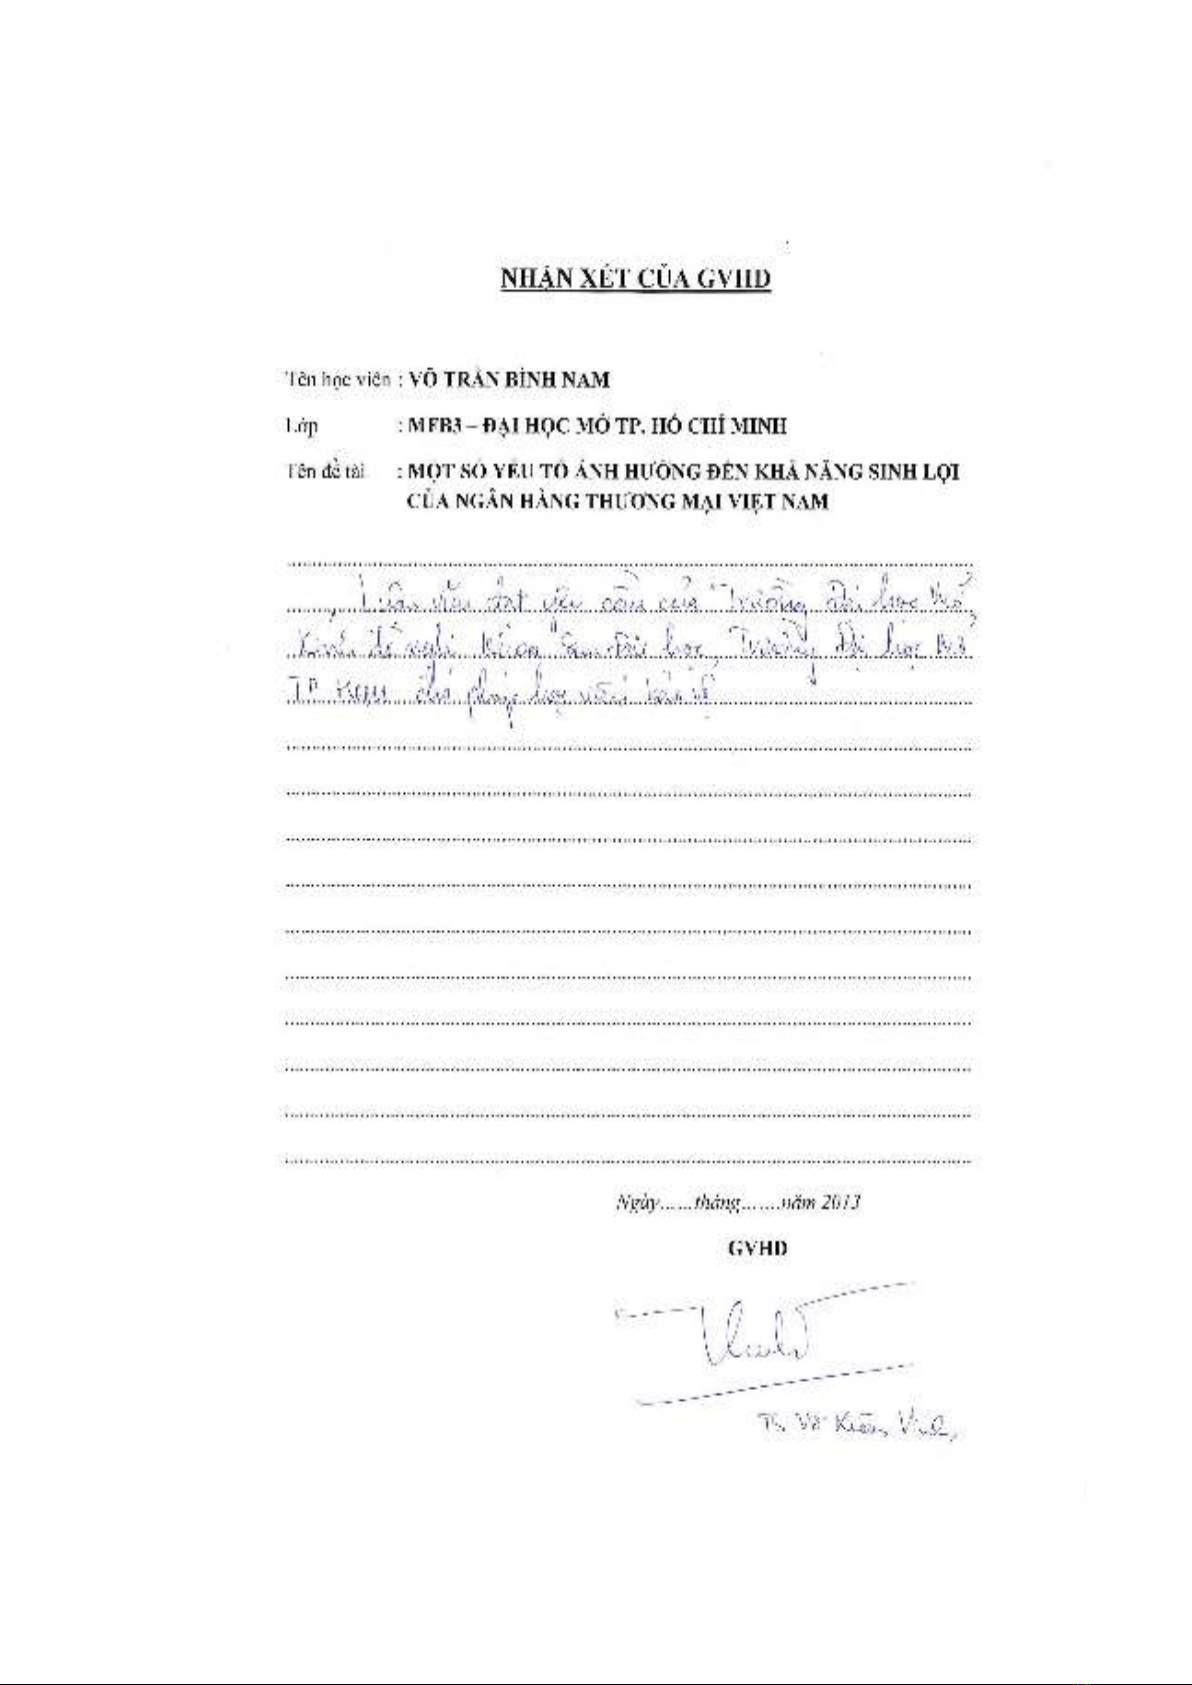 NHẬN XÉT CỦA GVHD
Tên học viên : VÕ TRẦN BÌNH NAM
Lớp : MFB3 – ĐẠI HỌC MỞ TP. HỒ CHÍ MINH
Tên đề tài : MỘT SỐ YẾU TỐ ẢNH HƯỞNG ĐẾN KHẢ NĂNG SINH LỢI
CỦA NGÂN HÀNG THƯƠNG MẠI VIỆT NAM
Luận văn đạt yêu cầu của Trường Đại học Mở,
Kính đề nghị Khoa Sau Đại học, Trường Đại học Mở
TP. HCM cho phép học viên bảo vệ
Ngày……tháng…….năm 2013
GVHD
TS. Võ Vinh